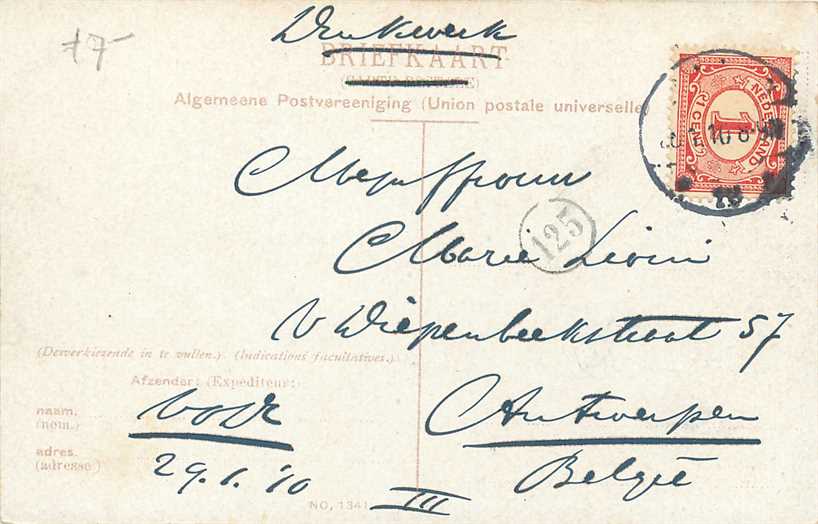 17-
Drukwerk
BRIEFKAART
Algemeene Postvereeniging (Union postale universelle)
NEDERLAND
1
1 CENT
10
Mejuffrouw
125
Marie
v Diepenbeekstraat 57
(Desverkiezende in te vullen.). (Indications facultatives.)
Afzender: (Expéditeur:)
naam.
(nom.)
Antwerpen
adres.
(adresse)
29.1.10
België
NO, 1341
III